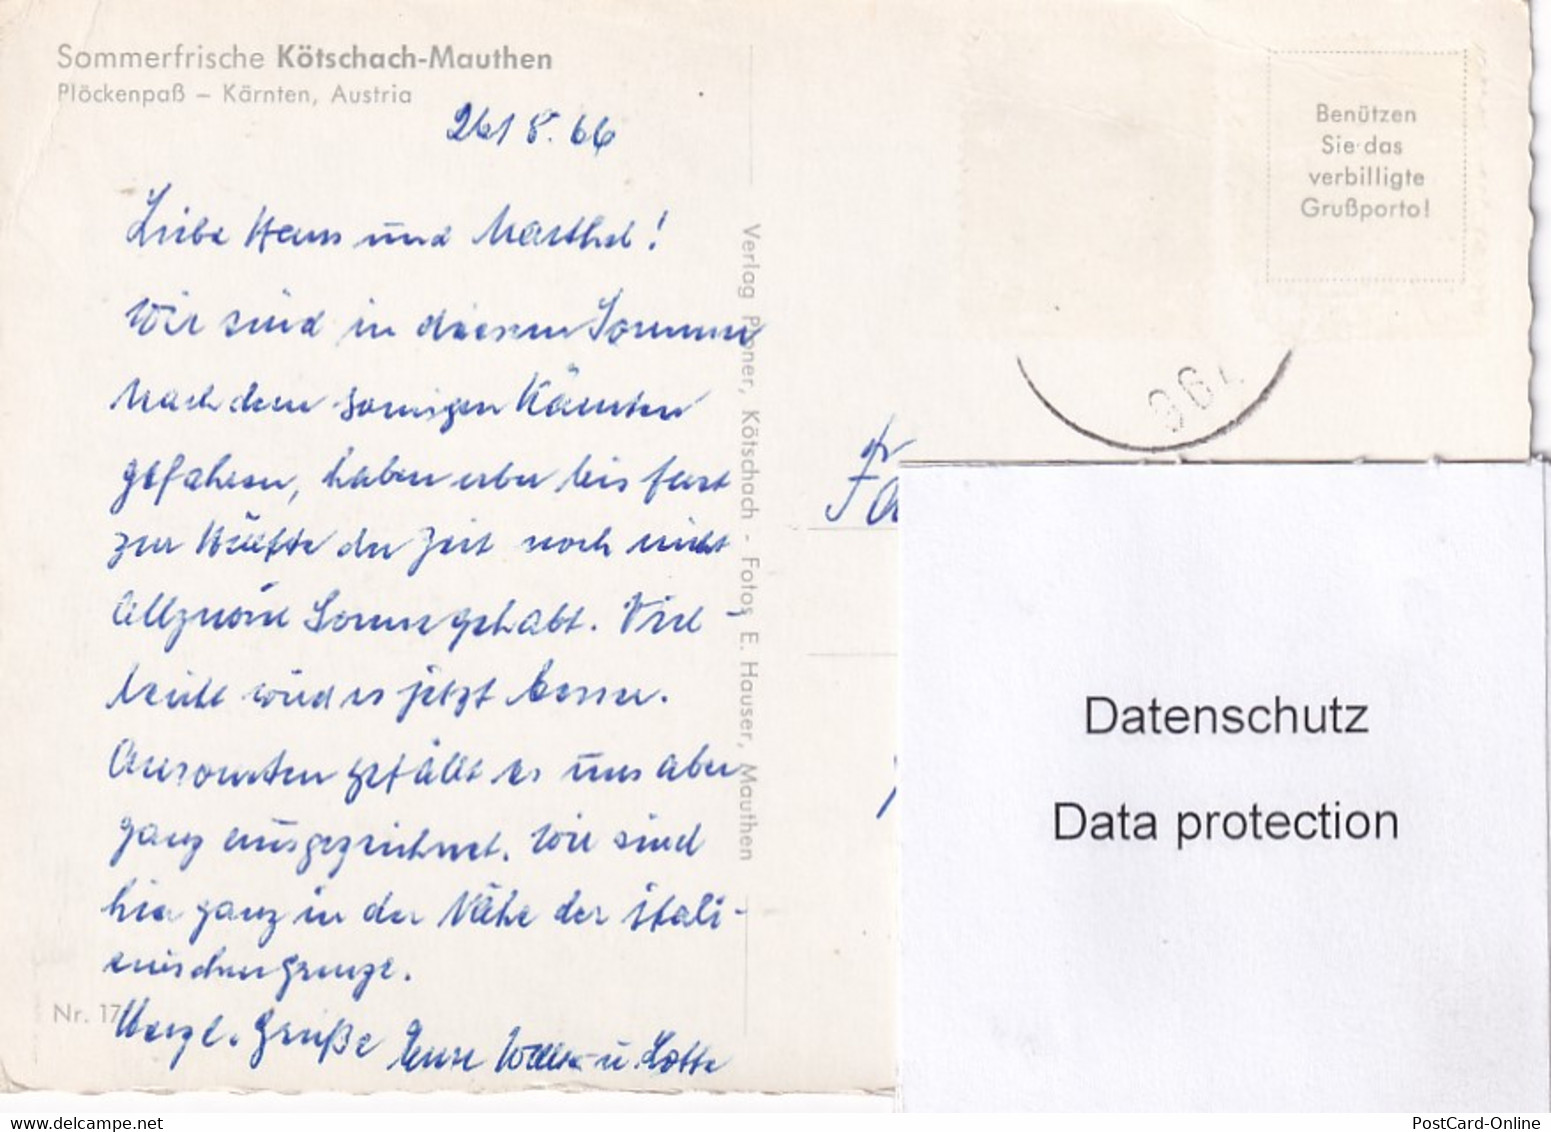 Sommerfrische Kötschach-Mauthen
Plöckenpaß – Kärnten, Austria
26/8.66
Liebe Hans und Marthel!
Wir sind in diesem Sommer
nach dem sonnigen Kärnten
gefahren, haben aber bis fast
zur Hälfte der Zeit noch nicht
allzuviel Sonne gehabt. Viel-
leicht wird es jetzt besser.
Ansonsten gefällt es uns aber
ganz ausgezeichnet. Wir sind
hier ganz in der Nähe der itali-
enischen Grenze.
Herzl. Grüße Eure u. Lotte
Nr. 17
Verlag Ploner, Kötschach - Fotos E. Hauser, Mauthen
Benützen
Sie das
verbilligte
Grußporto!
Fa
Datenschutz
Data protection
PostCard-Online